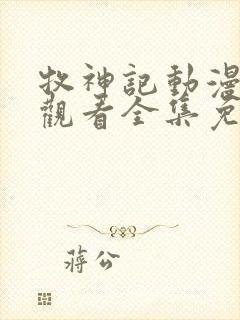 牧神記動漫
觀看全集免
蔣公